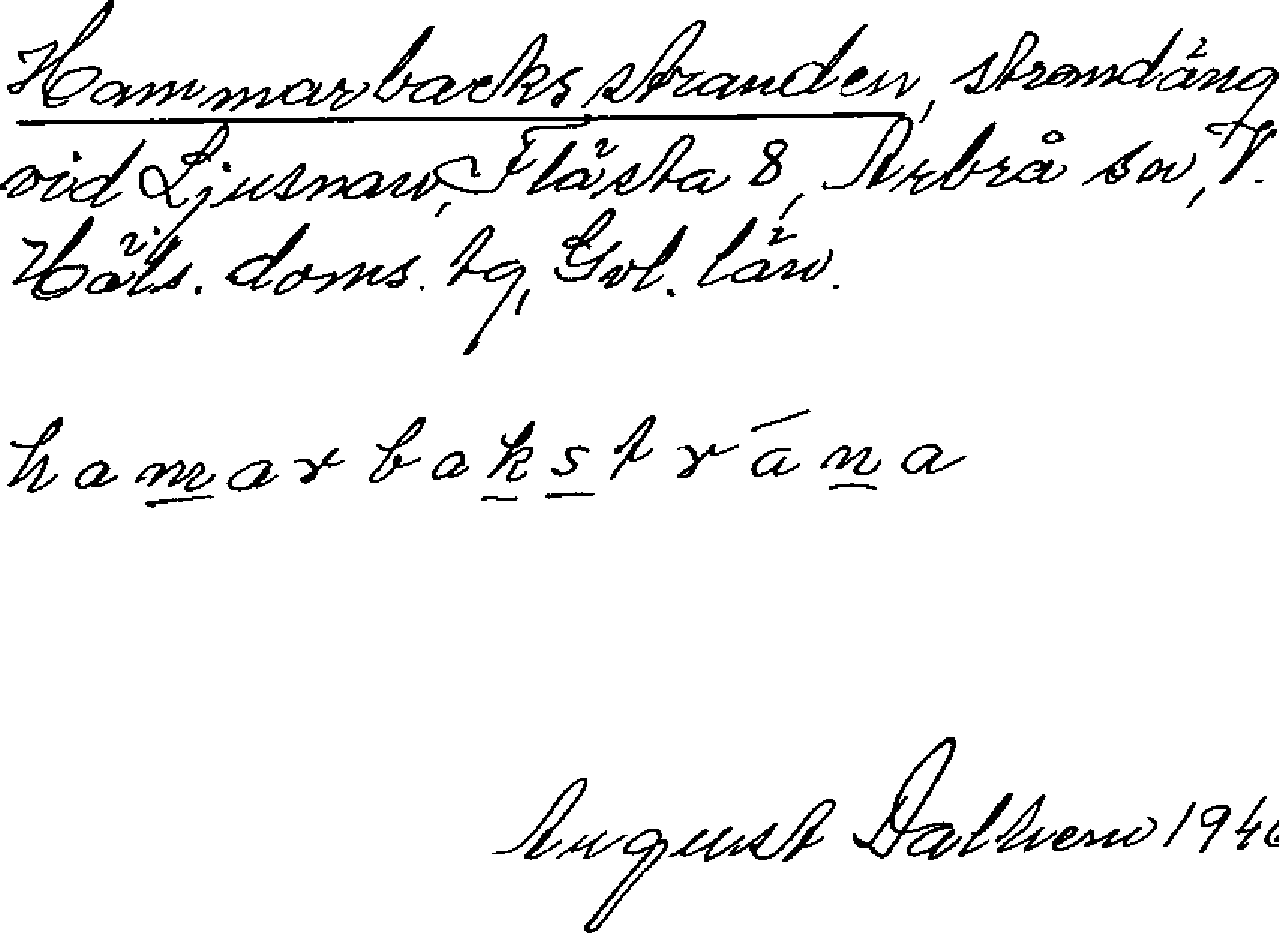 Hammarbacksstranden, strandäng
vid Ljusnan, Flästa 8, Arbrå sn, V.
Häls. doms. tg, Gvl. län.
hamarbakstrána
August Dalhem